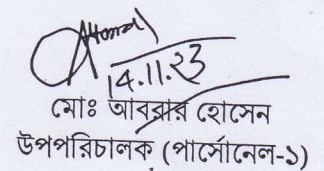 14.11.23
মোঃ আবরার হোসেন
উপপরিচালক (পার্সোনেল-১)